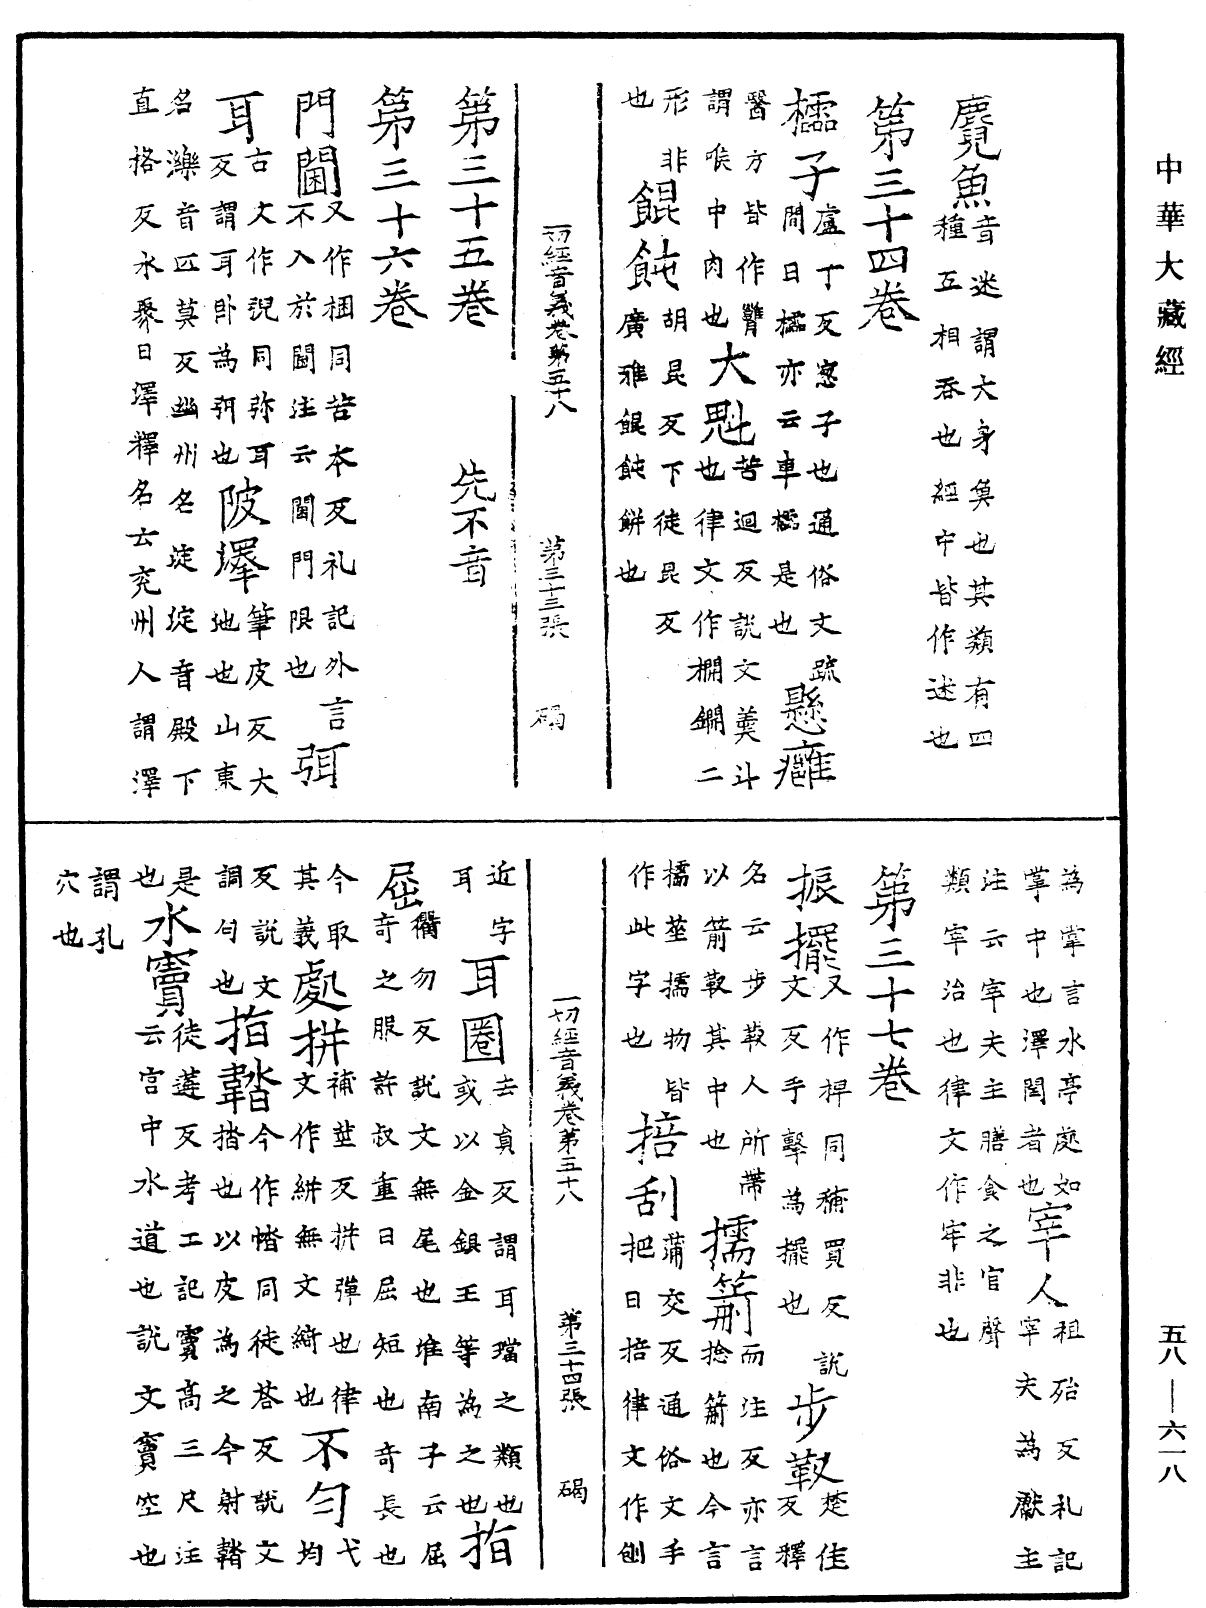 中華大藏經
麛魚音迷謂大身魚也其類有四
種互相吞也經中皆作迷也
第三十四卷
櫺子盧丁反窓子也通俗文疏
間曰櫺亦云車櫺是也懸癰
醫方皆作臃
謂喉中肉也大魁苦迴反說文羹斗
也律文作棡鐗二
形非餛飩胡昆反下徒昆反
廣雅餛飩餅也
也
一切經音義卷第五十八 第三十三張 碣
第三十五卷 先不音
第三十六卷
門閫又作梱同苦本反礼記外言
不入於閫注云閫門限也弭
耳古文作𧧝同弥耳
反謂耳卧為弭也陂澤筆皮反大
池也山東
名濼音匹莫反幽州名淀淀音殿下
直格反水聚曰澤釋名云兖州人謂澤
為掌言水亭處如
掌中也澤閏者也宰人祖殆反礼記
宰夫為獻主
注云宰夫主膳食之官聲
類宰治也律文作牢非也
第三十七卷
振擺又作捭同補買反說
文反手擊為擺也步靫楚佳
反釋
名云步靫人所帶
以箭靫其中也擩箭而注反亦言
捻箭也今言
擩莝擩物皆
作此字也掊刮蒲交反通俗文手
把曰掊律文作刨
一切經音義卷第五十八 第三十四張 碣
近字耳圈去負反謂耳璫之類也
或以金銀玉等為之也
耳指
屈衢勿反說文無尾也淮南子云屈
奇之服許叔重曰屈短也奇長也
今取
其義處拼補莖反拼彈也律
文作絣無文綺也不勻弋
均
反說文
調勻也指鞜今作㧺同徒荅反說文
鞜指㧺也以皮為之今射鞜
是
也水竇徒遘反考工記竇高三尺注
云宮中水道也說文竇空也
謂孔
穴也
五八—六一八